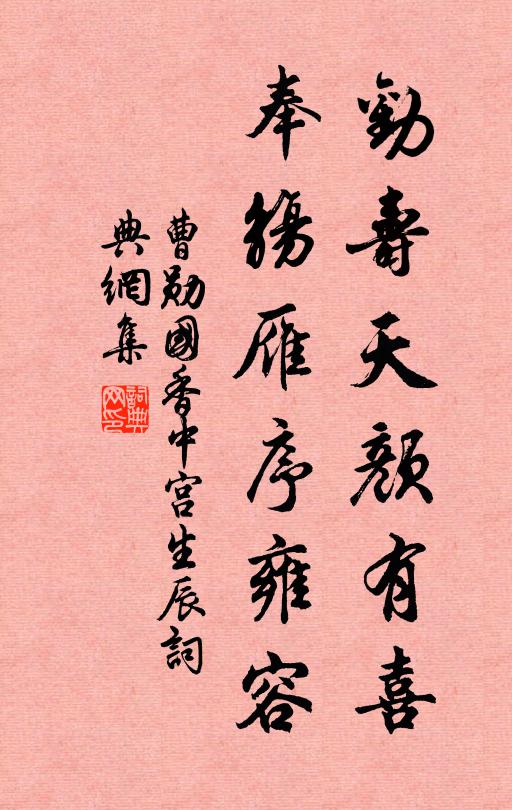 勸壽天顏有喜
奉觴雁序雍容
曹勛國香中宮生辰詞
典網集
詞典網印